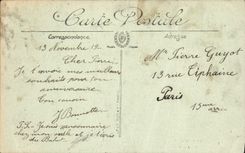 Carte Postale
Correspondance
Adresse
13 Novembre 12
Cher Pierre
Je t'envoie mes meilleurs
souhaits pour ton
anniversaire.
Ton cousin
J Brunotte
P.S. Je suis pensionnaire
chez mon oncle et je
du Babut
Mr Pierre Guyot
13 rue Tiphaine
Paris
15ème
arr.